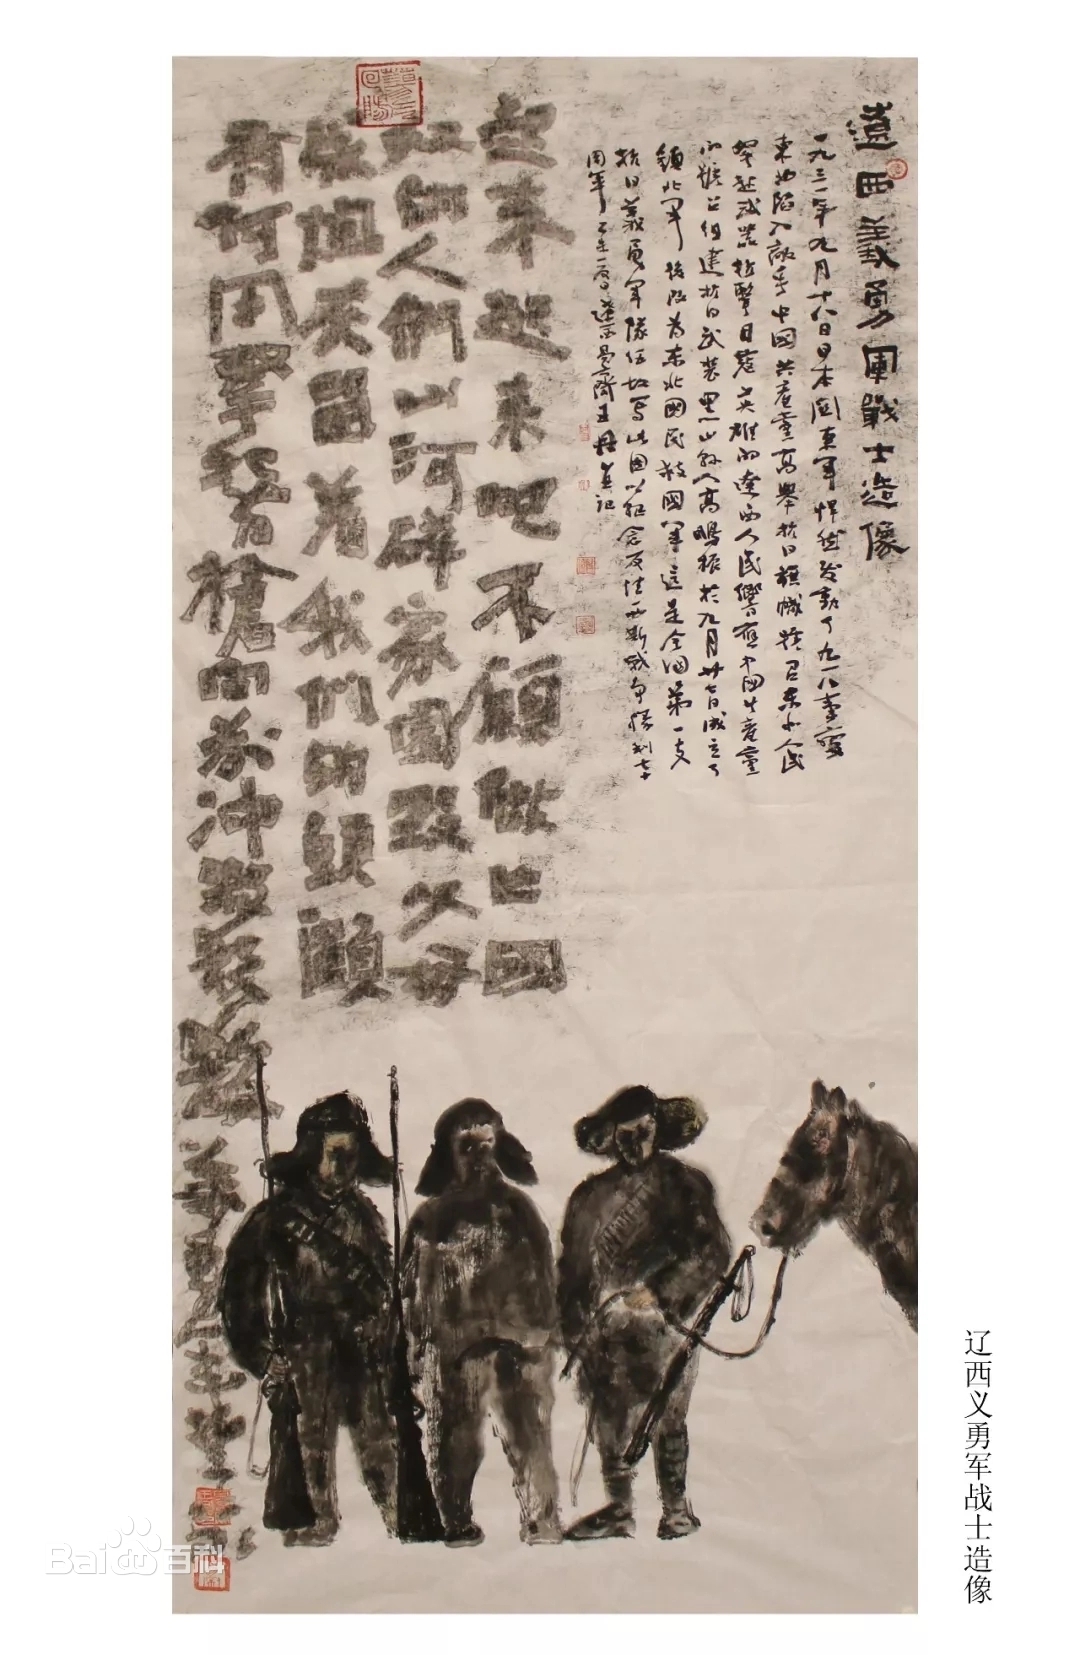 遼西義勇軍戰士造像
一九三一年九月十八日日本関東軍悍然发動了九一八事變
東北陷入敵手中國共產黨高舉抗日旗幟號召東北人民
拏起武器抗擊日寇英雄的遼西人民響應中國共產黨
的號召組建抗日武裝黑山縣人高鵬振於九月廿七日成立了
鎮北軍後改為東北國民救國軍這是全國第一支
抗日義勇軍隊伍故写此图以紀念反法西斯戰争勝利七十
周年乙未一
起来起来吧不願做亡國
奴的人們山河碎家園毀父母
喪炮火留着我們的頭顱
有何用拿起刀槍向前沖
辽西义勇军战士造像
Bai 百科